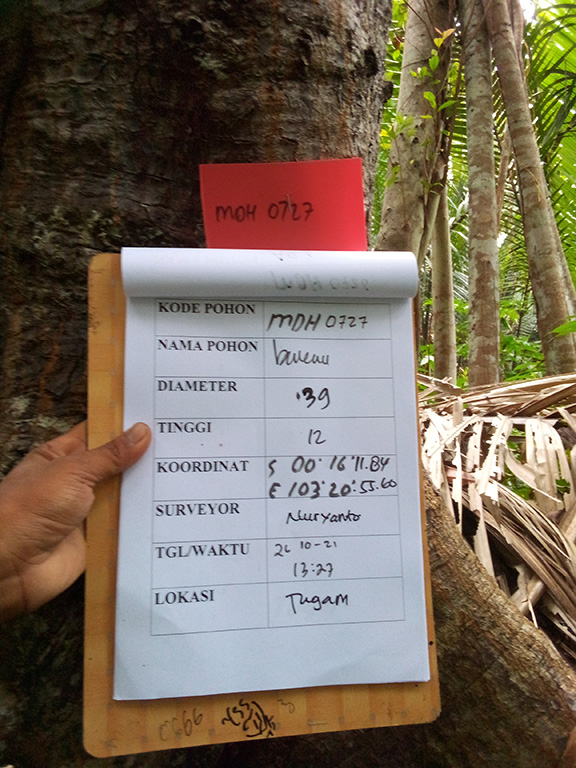 MDH 0727
KODE POHON MDH 0727
NAMA POHON
DIAMETER 39
TINGGI 12
KOORDINAT S 00° 16' 11.84
E 103° 20' 55.60
SURVEYOR Nuryanto
TGL/WAKTU 26 10-21
13:27
LOKASI Tugam
0666